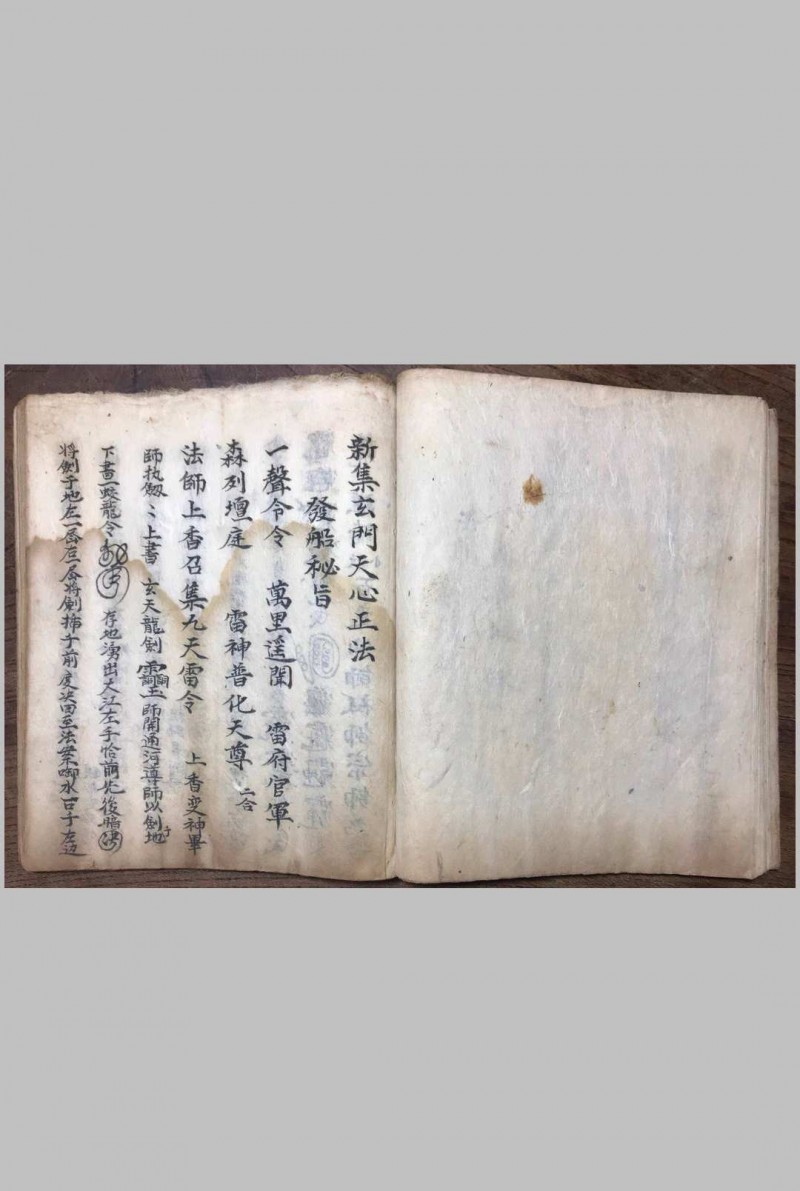 新集玄門天心正法
發船秘旨
一聲令令 萬里遥聞 雷府官軍
森列壇庭 雷神普化天尊 二合
法師上香召集九天雷令 上香变神畢
師执劔〻上書 玄天龍劍 師開通河導師以劍地
下畫一蛟龍令 存地湧出大江左手恰前先後
將劍于地左一 右一 將劍 于前 水 于左边